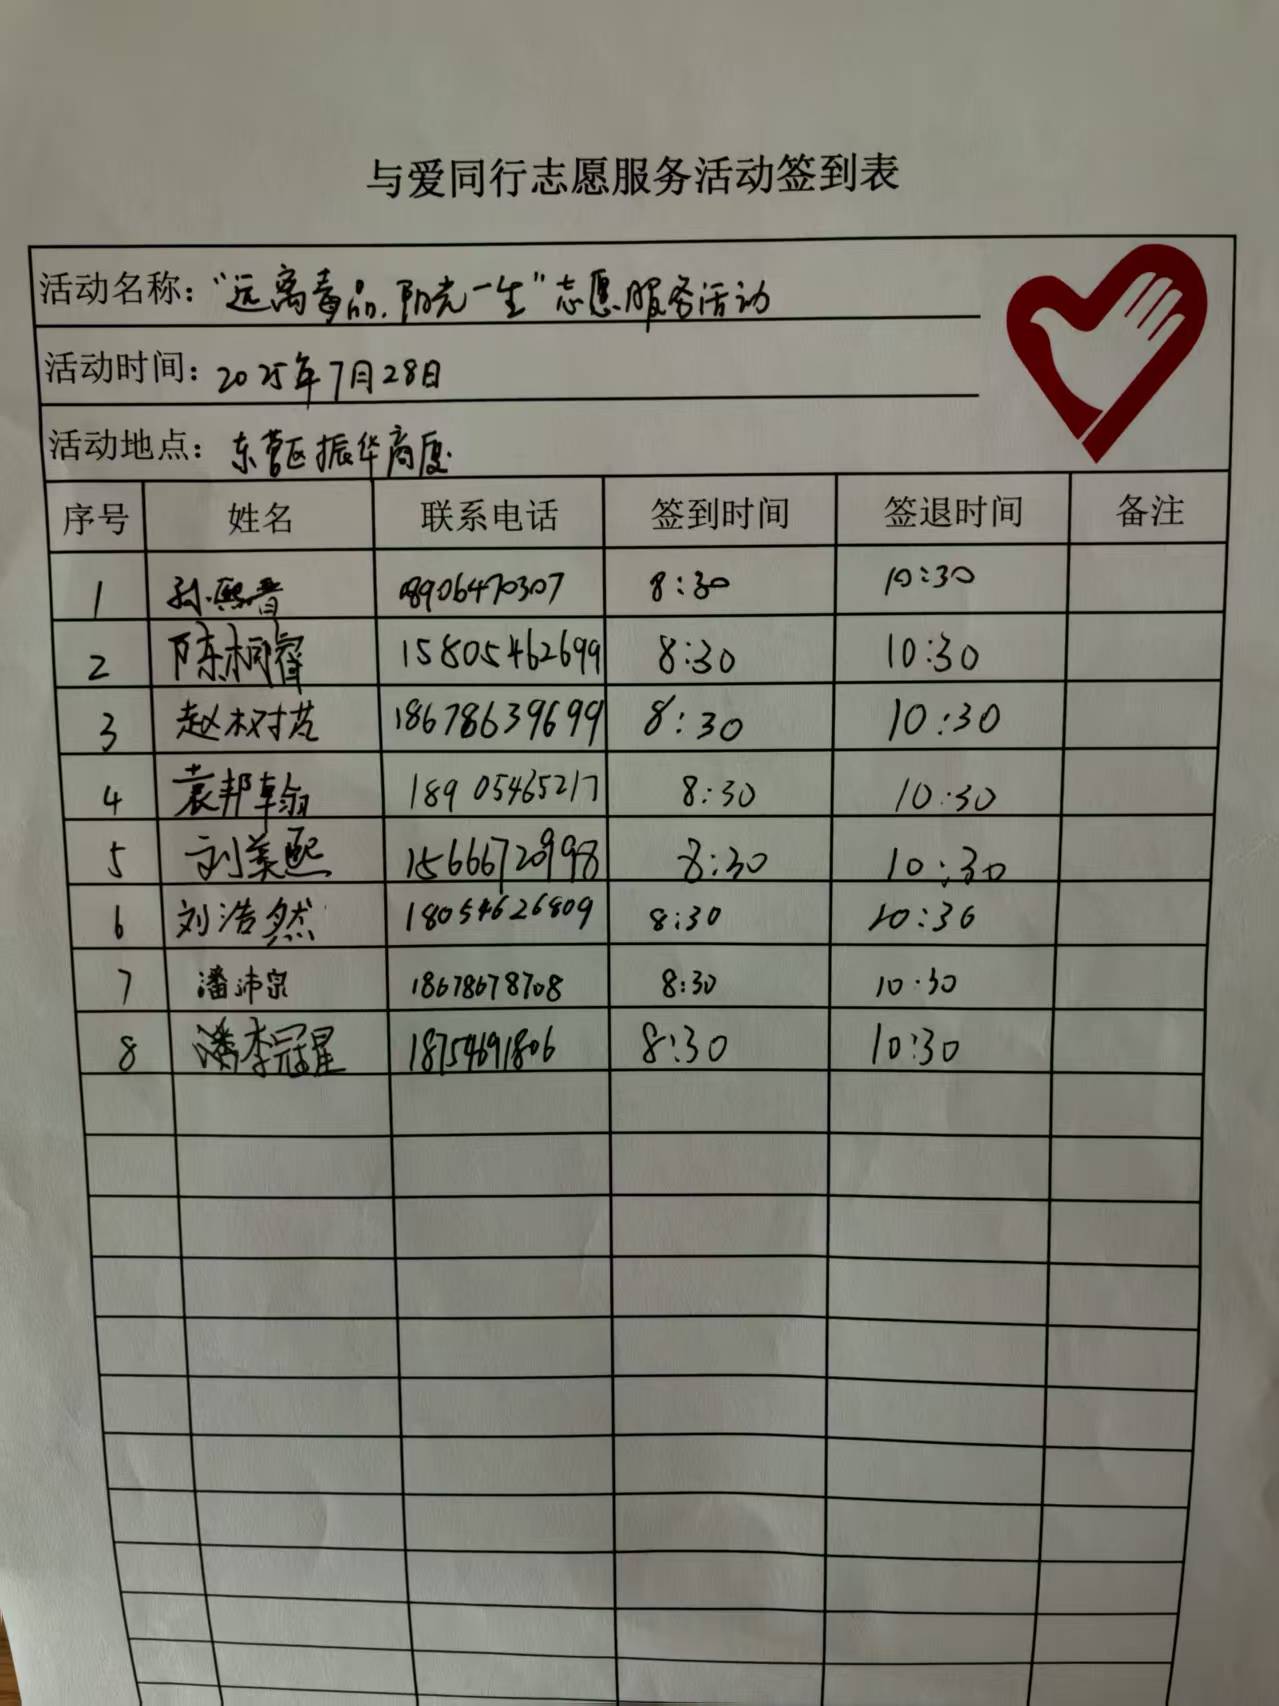 与爱同行志愿服务活动签到表
活动名称："远离毒品.阳光一生"志愿服务活动
活动时间：2025年7月28日
活动地点：东营区振华商厦
序号 姓名 联系电话 签到时间 签退时间 备注
1 孙熙晋 8:30 10:30
2 陈桐睿 15805462699 8:30 10:30
3 赵树芃 18678639699 8:30 10:30
4 袁邦翰 18905465217 8:30 10:30
5 刘美熙 15666720998 8:30 10:30
6 刘浩然 18054626809 8:30 10:30
7 潘沛宗 18678678708 8:30 10:30
8 潘李冠星 18754691806 8:30 10:30